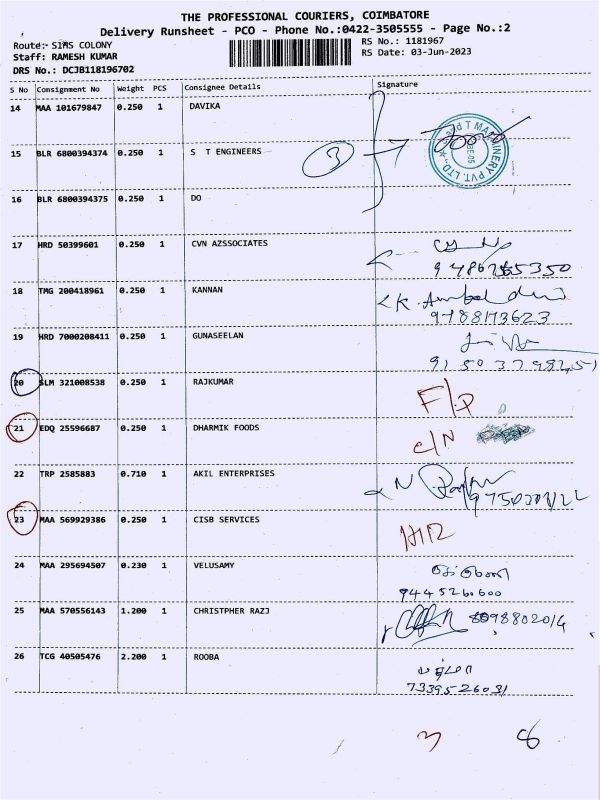 THE PROFESSIONAL COURIERS, COIMBATORE
Delivery Runsheet - PCO - Phone No.:0422-3505555 - Page No.:2
Route:- SIHS COLONY
RS No.: 1181967
Staff: RAMESH KUMAR
RS Date: 03-Jun-2023
DRS No.: DCJB118196702
S No Consignment No Weight PCS Consignee Details Signature
14 MAA 101679847 0.250 1 DAVIKA
15 BLR 6800394374 0.250 1 S T ENGINEERS 3
16 BLR 6800394375 0.250 1 DO
17 HRD 50399601 0.250 1 CVN AZSSOCIATES
18 TMG 200418961 0.250 1 KANNAN
9788173623
19 HRD 7000208411 0.250 1 GUNASEELAN
20 SLM 321008538 0.250 1 RAJKUMAR
F/P
21 EDQ 25596687 0.250 1 DHARMIK FOODS
C/N
22 TRP 2585883 0.710 1 AKIL ENTERPRISES
23 MAA 569929386 0.250 1 CISB SERVICES
24 MAA 295694507 0.230 1 VELUSAMY
9445260600
25 MAA 570556143 1.200 1 CHRISTPHER RAZJ
26 TCG 40505476 2.200 1 ROOBA
7339526031
3 8